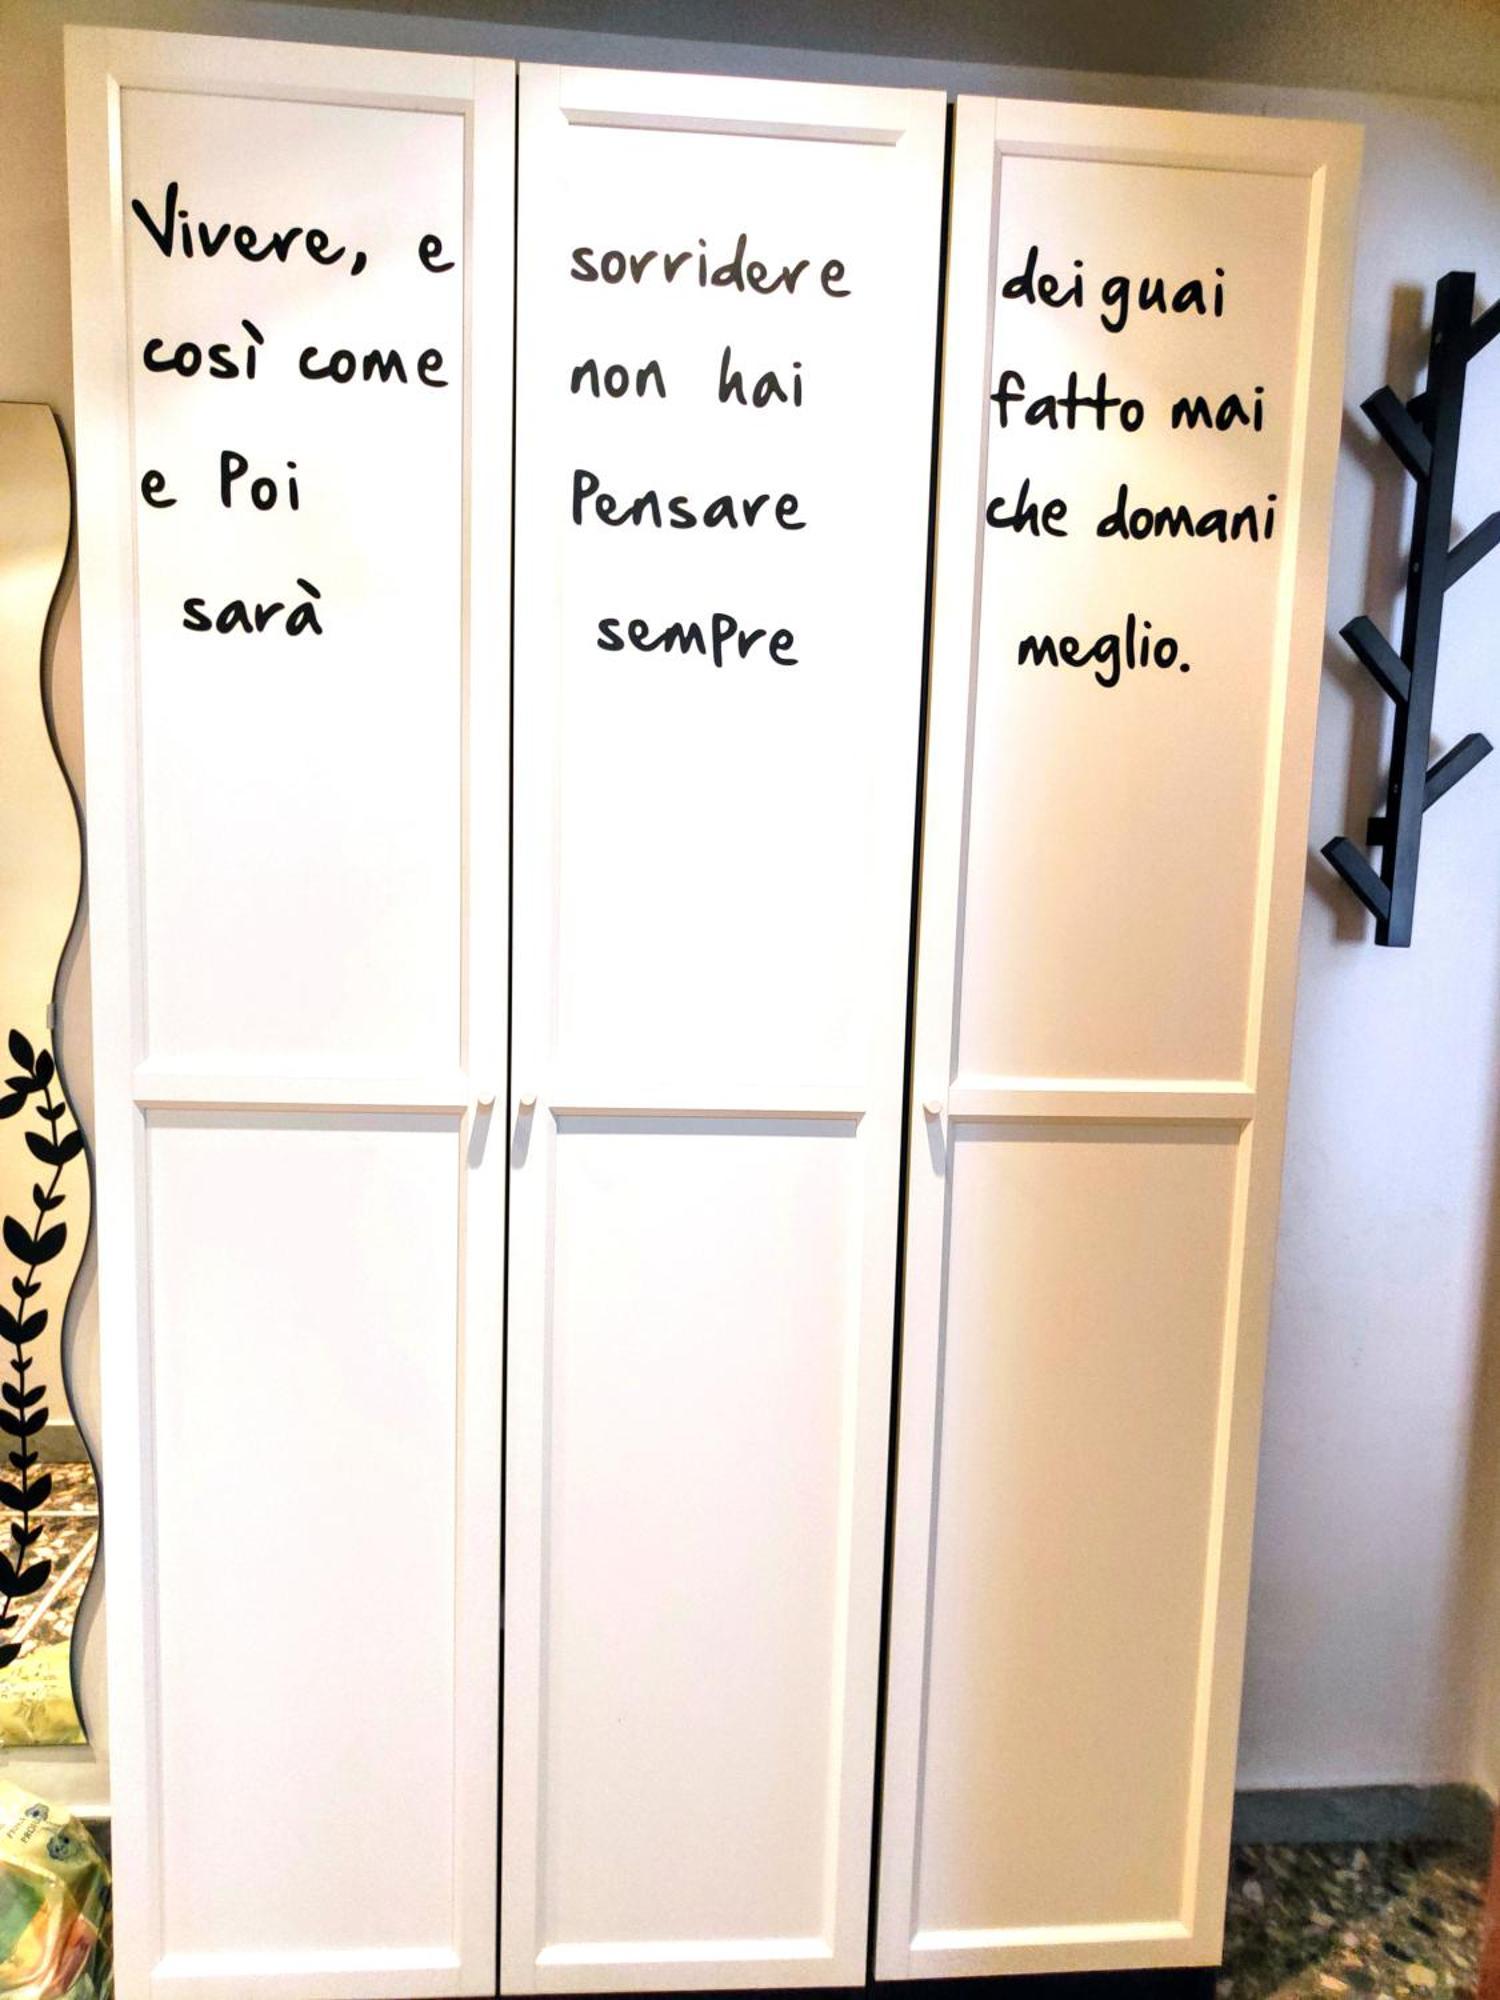 Vivere, e sorridere dei guai
così come non hai fatto mai
e Poi Pensare che domani
sarà sempre meglio.